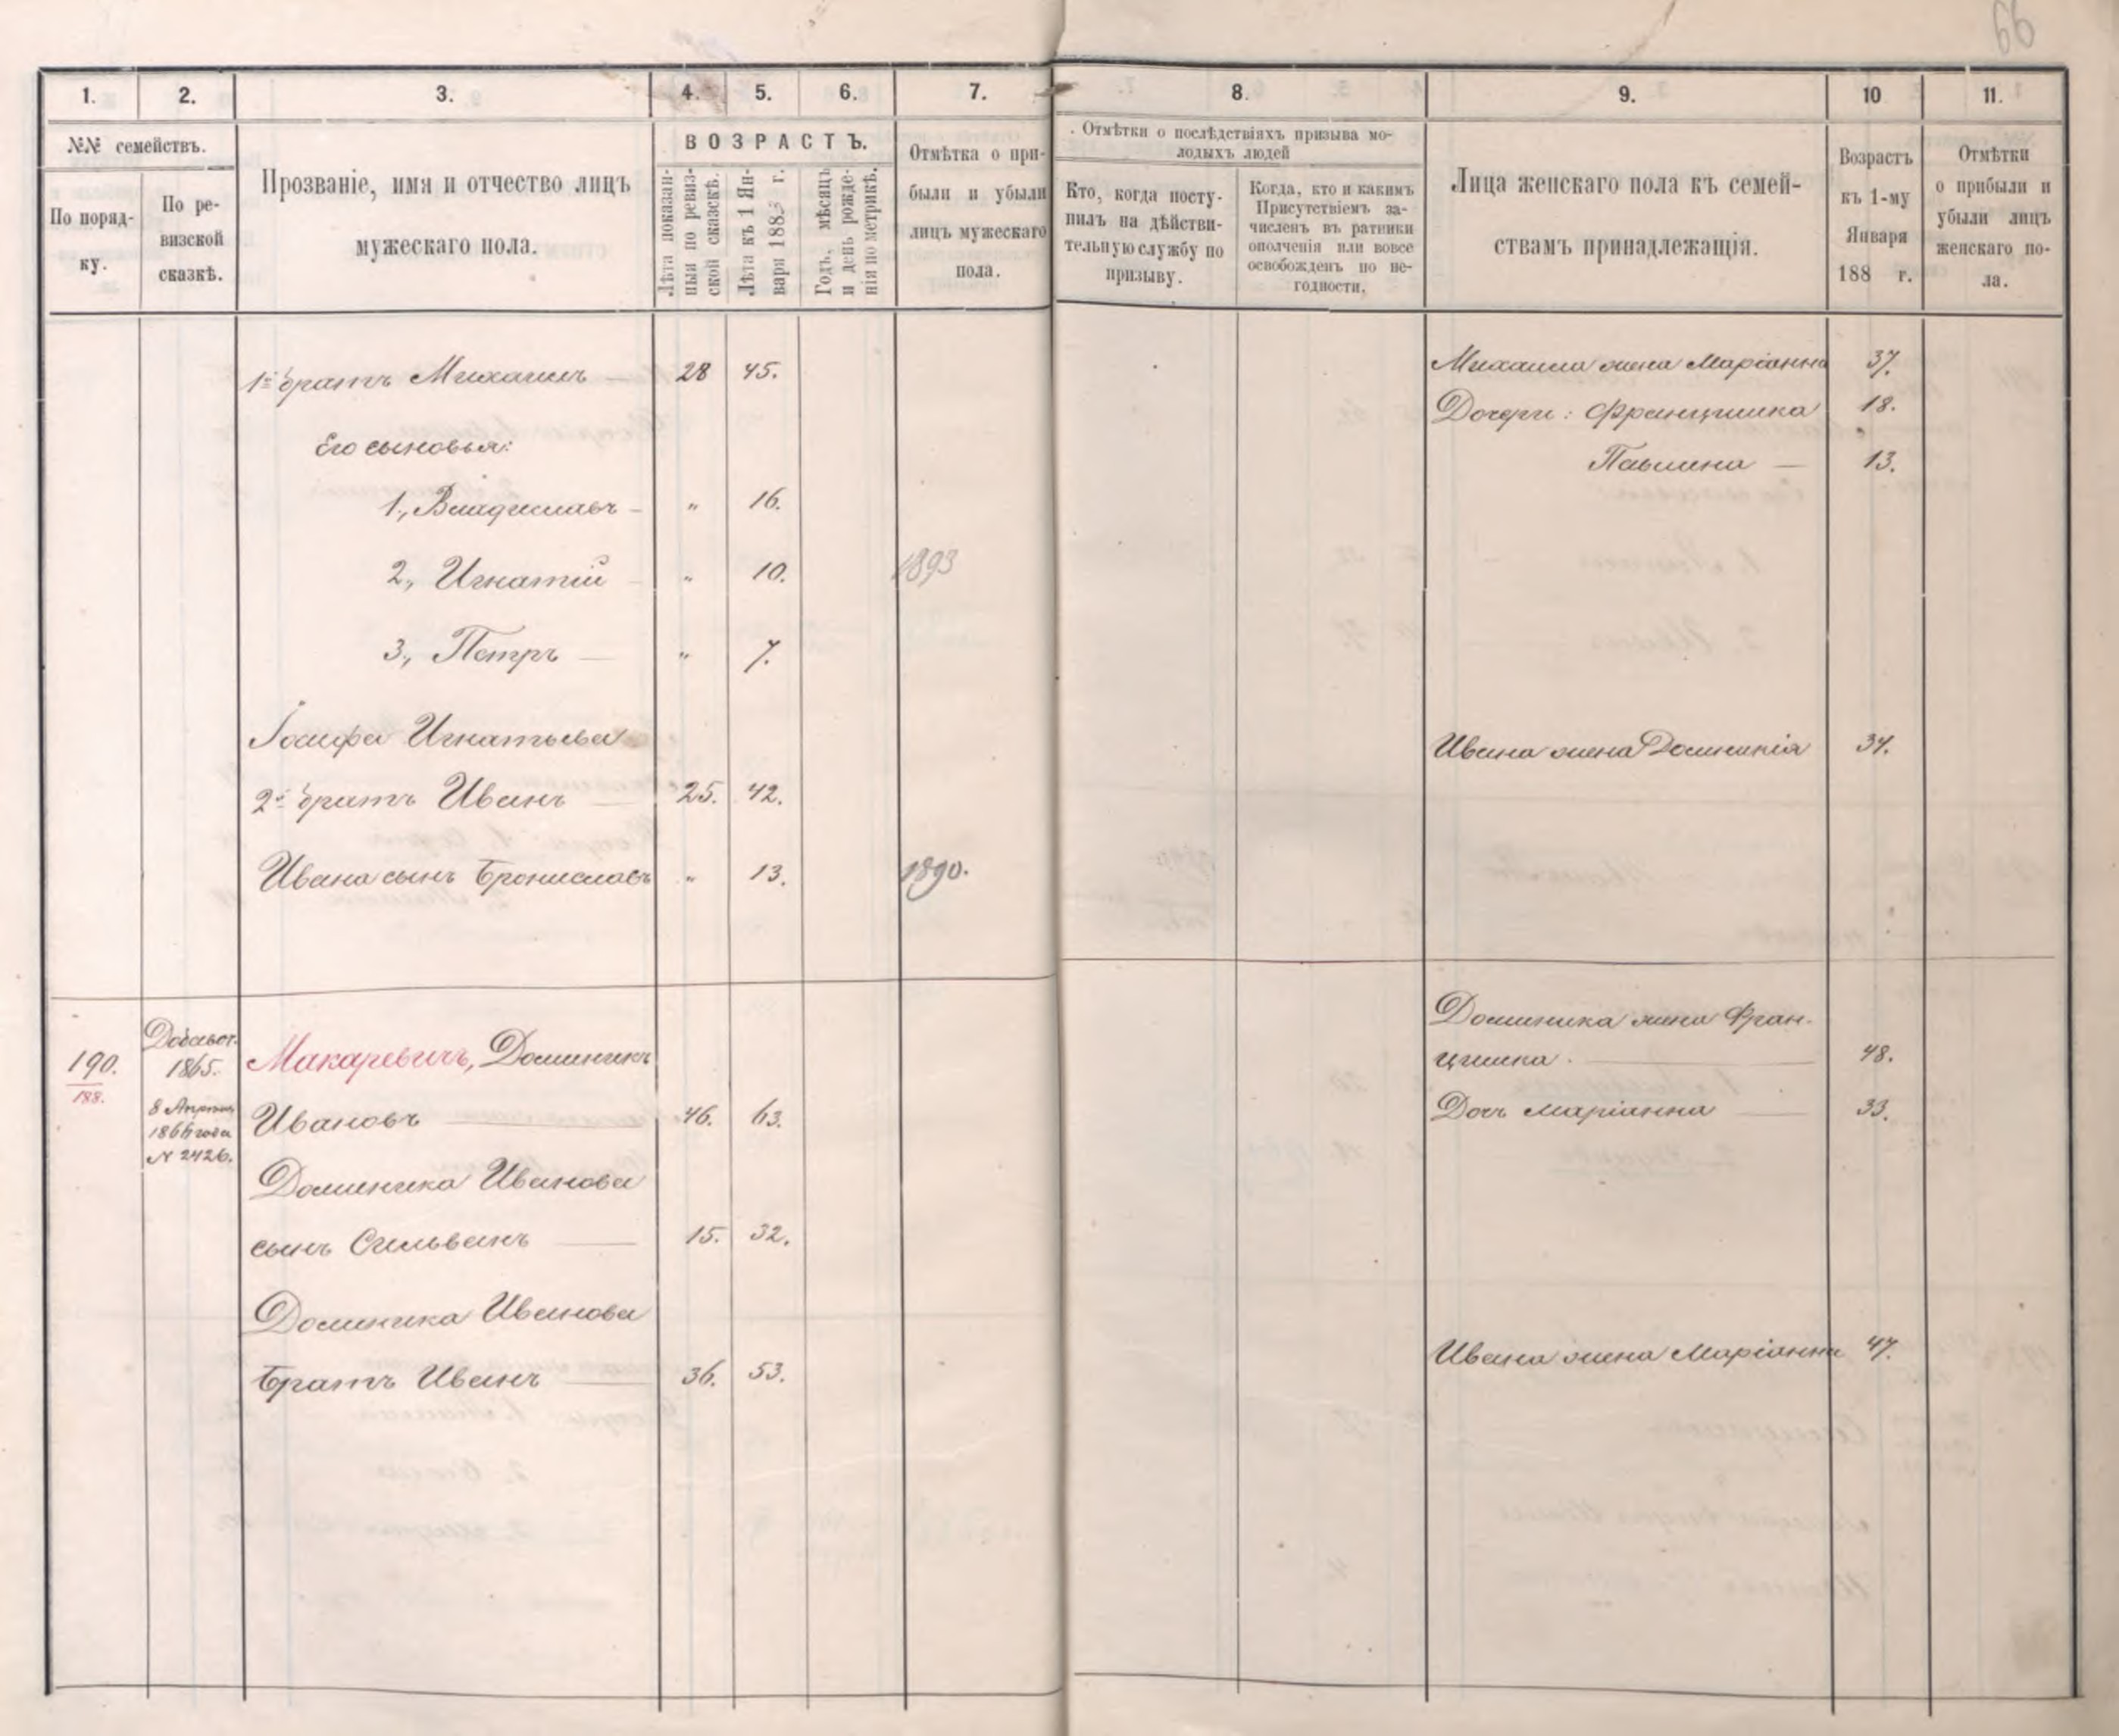 66
1. 2. 3. 4. 5. 6. 7. 8. 9. 10 11.
№№ семействъ.
По поряд-
ку.
По ре-
визской
сказкѣ.
Прозваніе, имя и отчество лицъ
мужескаго пола.
ВОЗРАСТЪ.
Лѣта показан-
ныя по ревиз-
ской сказскѣ.
Лѣта къ 1 Ян-
варя 1883 г.
Годъ, мѣсяцъ
и день рожде-
нія по метрикѣ.
Отмѣтка о при-
были и убыли
лицъ мужескаго
пола.
Отмѣтки о послѣдствіяхъ призыва мо-
лодыхъ людей
Кто, когда посту-
пилъ на дѣйстви-
тельную службу по
призыву.
Когда, кто и какимъ
Присутствіемъ за-
численъ въ ратники
ополченія или вовсе
освобожденъ по не-
годности.
Лица женскаго пола къ семей-
ствамъ принадлежащія.
Возрастъ
къ 1-му
Января
188 г.
Отмѣтки
о прибыли и
убыли лицъ
женскаго по-
ла.
1й братъ Михаилъ — 28 45. Михаила жена Маріанна 37.
Дочери: Францишка 18.
Его сыновья:
Павлина — 13.
1., Владиславъ — " 16.
2., Игнатій — " 10. 1893
3., Петръ — " 7.
Іосифа Игнатьева
Ивана жена Доминикія 34.
2й братъ Иванъ — 25. 42.
Ивана сынъ Брониславъ " 13. 1890.
Доминика жена Фран-
190. Добавоч. Макаревичъ, Доминикъ цишка. — 48.
188. 1865.
8 Апрѣля Ивановъ — 46. 63. Дочь Маріанна — 33.
1866 года
N 2426.
Доминика Иванова
сынъ Сильванъ — 15. 32.
Доминика Иванова
Ивана жена Маріанна 47.
братъ Иванъ — 36. 53.